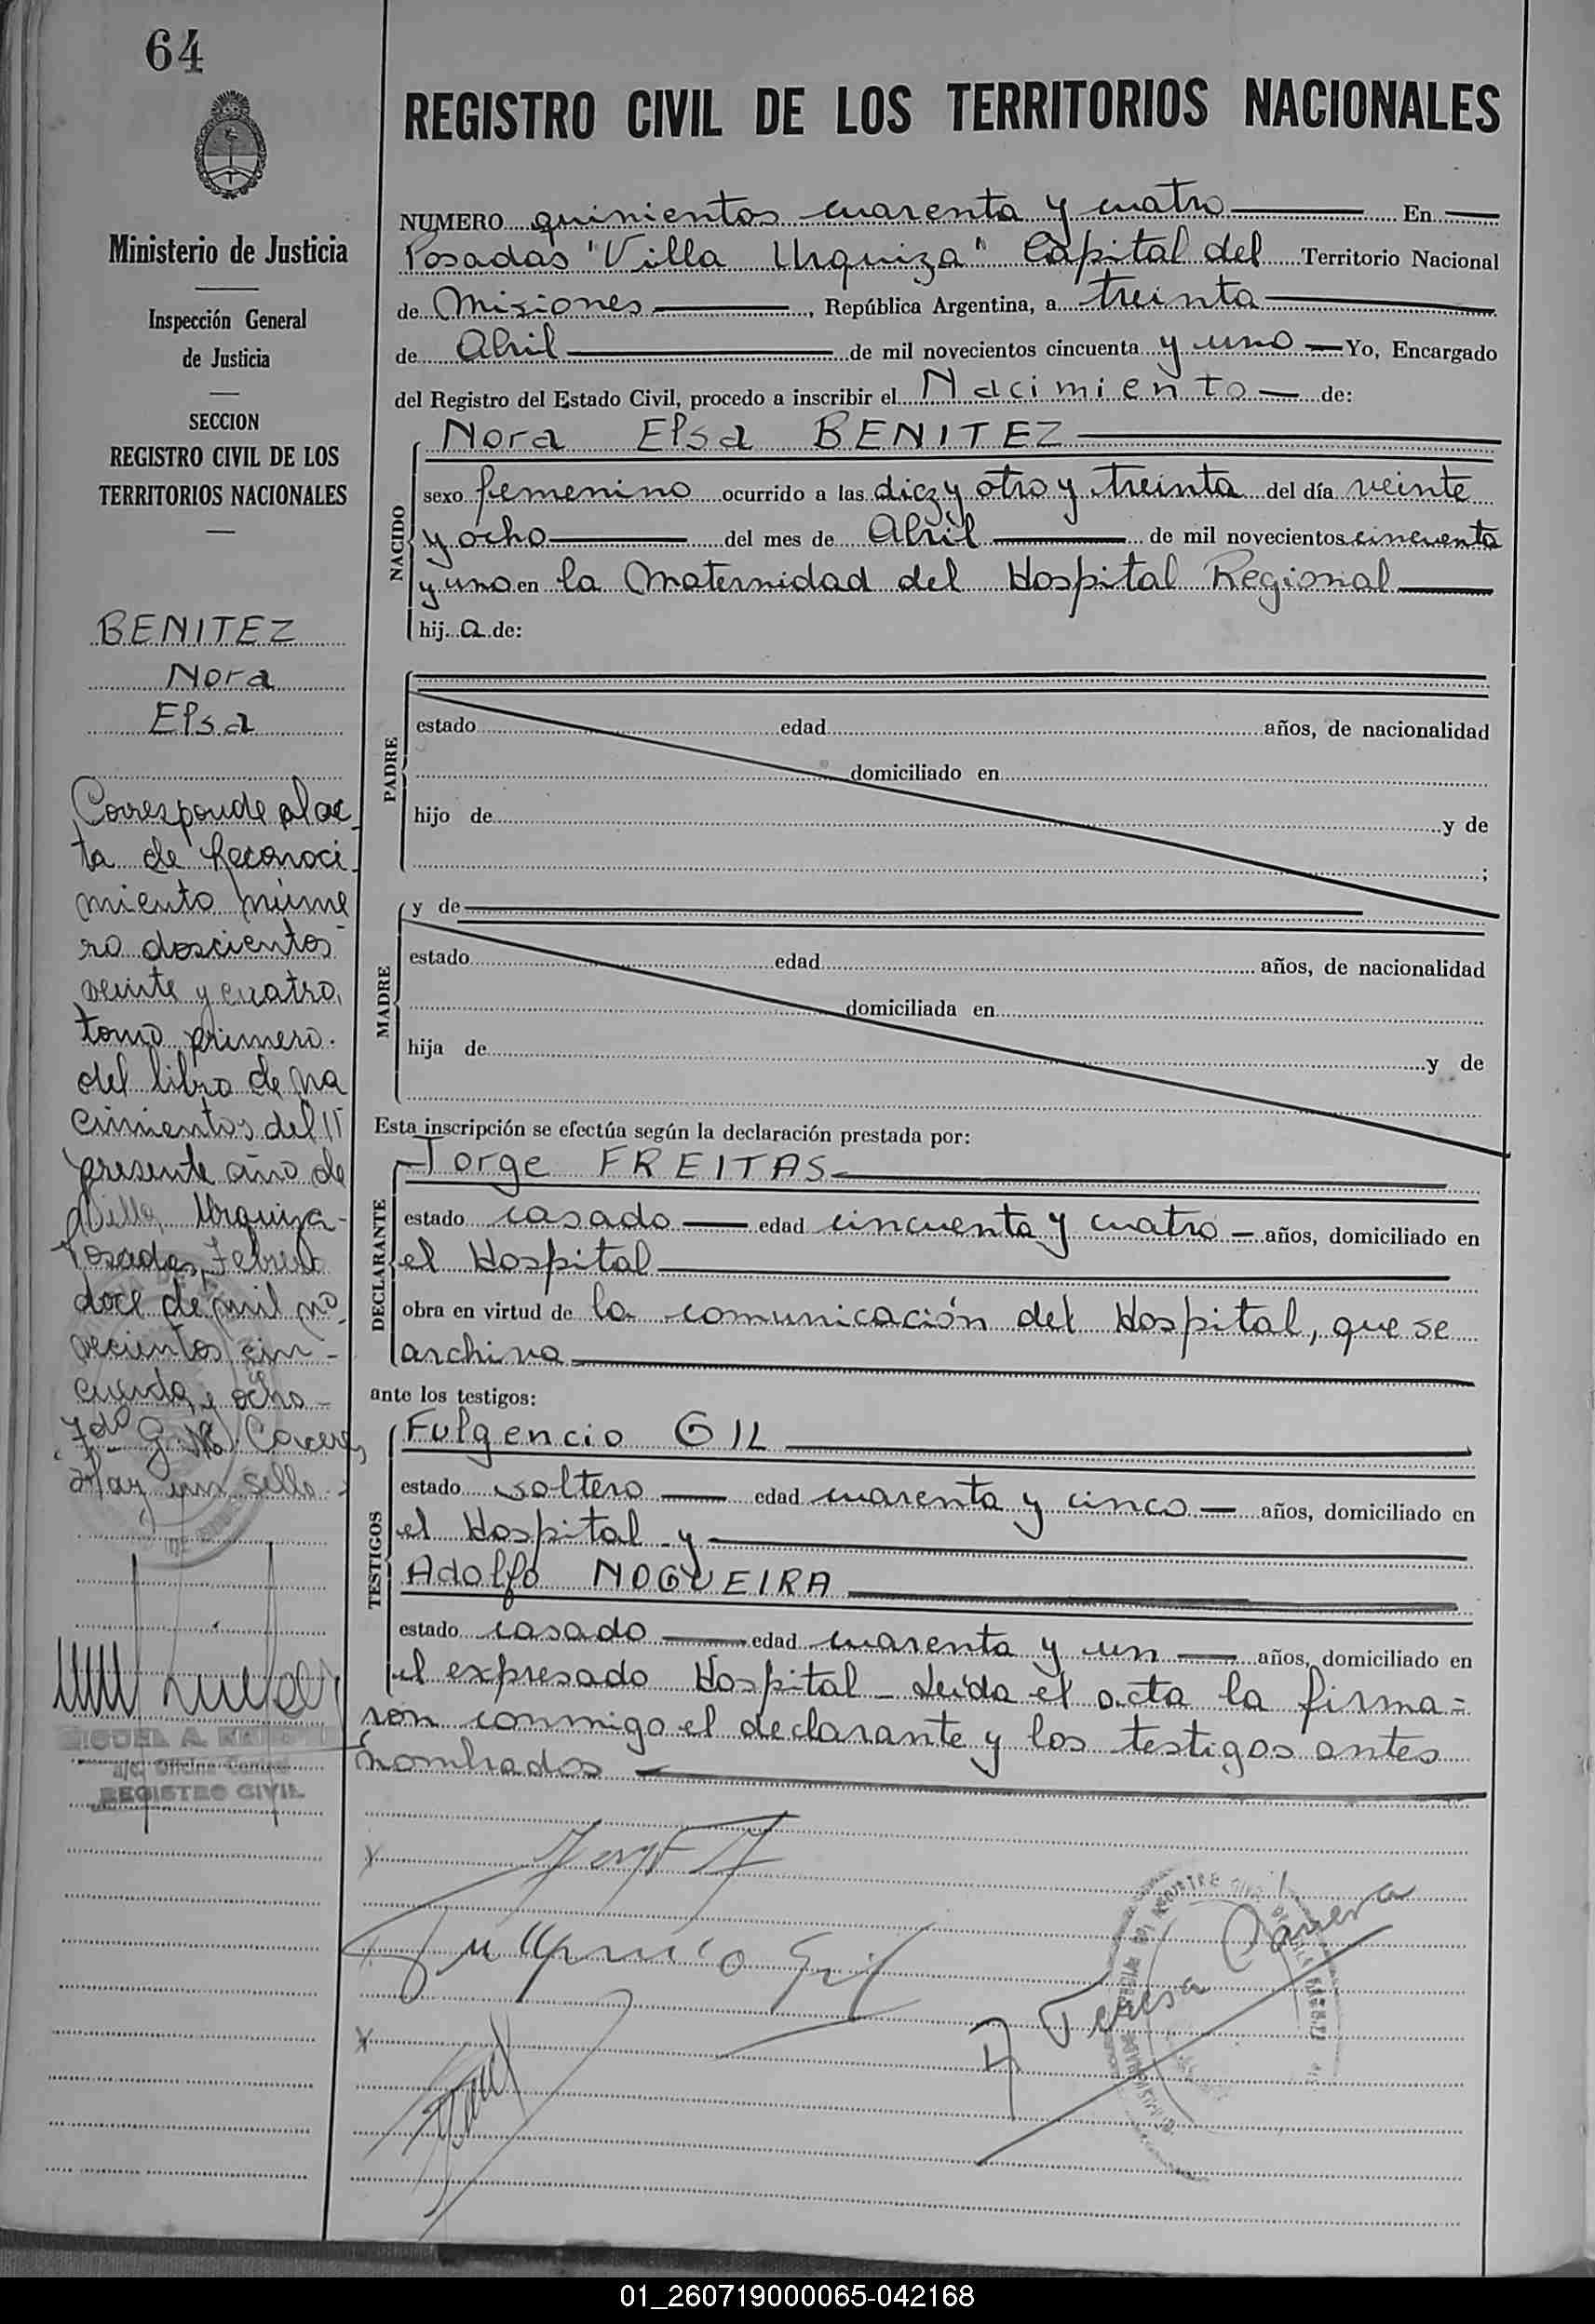 64
REGISTRO CIVIL DE LOS TERRITORIOS NACIONALES
Ministerio de Justicia
Inspección General
de Justicia
SECCION
REGISTRO CIVIL DE LOS
TERRITORIOS NACIONALES
BENITEZ
Nora
Elsa
Corresponde al ac
ta de Reconoci
miento núme
ro doscientos
veinte y cuatro,
tomo primero
del libro de na
cimientos del
presente año de
Villa Urquiza-
Posadas, Febrero
doce de mil no
vecientos cin-
cuenta y ocho-
Fdo G. N. Caceres
Hay un sello-
MIGUEL A.
a/c. Oficina Central
REGISTRO CIVIL
NUMERO quinientos cuarenta y cuatro En
Posadas "Villa Urquiza" Capital del Territorio Nacional
de Misiones, República Argentina, a treinta
de Abril de mil novecientos cincuenta y uno Yo, Encargado
del Registro del Estado Civil, procedo a inscribir el Nacimiento de:
Nora Elsa BENITEZ
NACIDO
sexo femenino ocurrido a las diez y otro y treinta del día veinte
y ocho del mes de Abril de mil novecientos cincuenta
y uno en la Maternidad del Hospital Regional
hija de:
PADRE
estado edad años, de nacionalidad
domiciliado en
hijo de y de
;
MADRE
y de
estado edad años, de nacionalidad
domiciliada en
hija de y de
Esta inscripción se efectúa según la declaración prestada por:
DECLARANTE
Jorge FREITAS
estado casado edad cincuenta y cuatro años, domiciliado en
el Hospital
obra en virtud de la comunicación del Hospital, que se
archiva
ante los testigos:
TESTIGOS
Fulgencio GIL
estado soltero edad cuarenta y cinco años, domiciliado en
el Hospital y
Adolfo NOGUEIRA
estado casado edad cuarenta y un años, domiciliado en
el expresado Hospital - Leída el acta la firma=
ron conmigo el declarante y los testigos antes
nombrados
x
Fulgencio Gil
x
A Teresa
01_260719000065-042168